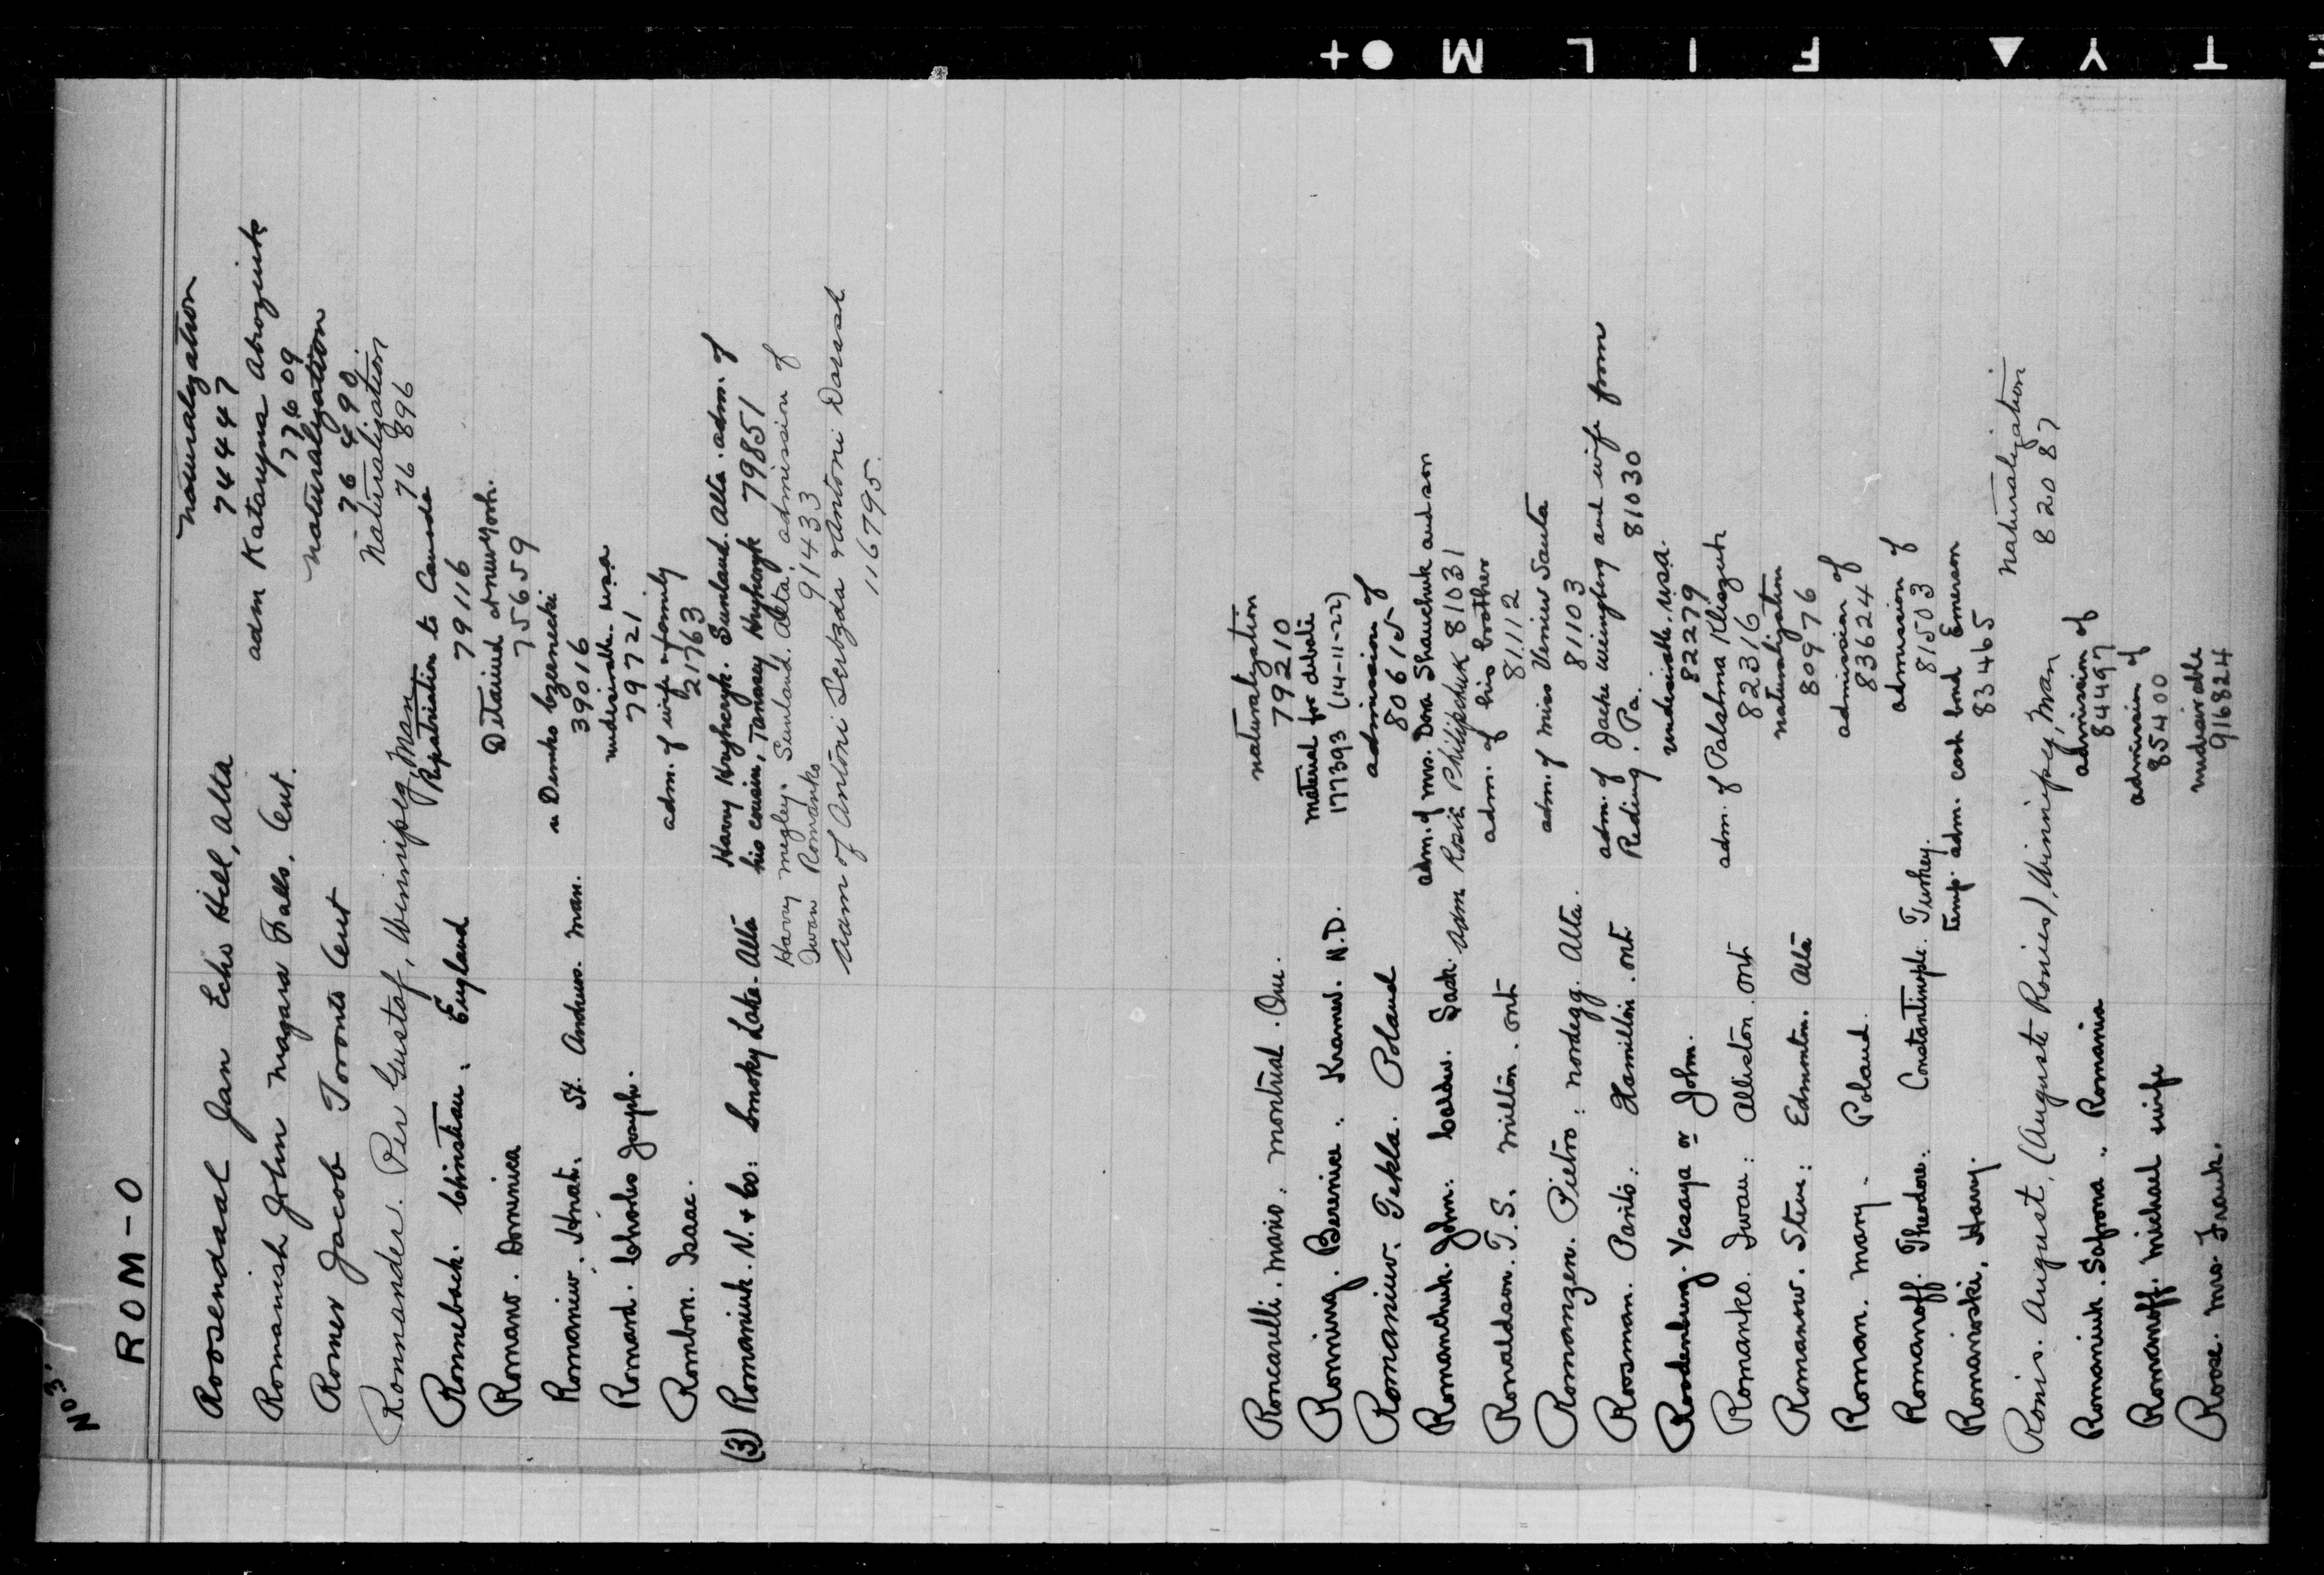 No 3.
ROM-O
Roosendaal Jan Echo Hill, Alta naturalization
74447
Romanish John Niagara Falls. Ont. adm Kataryna Abrozinik
77609
Romer Jacob Toronto Ont naturalization
76490
Ronnander. Per Gustaf, Winnipeg, Man Naturalization
76896
Ronnebach. Christian. England Repatriation to Canada
79116
Romano. Dominica Detained at New York.
75659
Romaniw. Hnat. St. Andrews. Man. Demko
39016
Romard. Charles Joseph. undesirable. USA
79721
Rombon. Isaac. adm. of wife & family
21763
(3) Romaniuk. N. & Co: Smoky Lake. Alta Harry Hryhoryk. Sunland. Alta. adm. of
his cousin, Hryhoryk 79851
Harry Megley. Sunland. Alta. admission of
Iwan Romanko 91433
adm of Antoni Antoni
116795.
Roncarelli. Mario. Montreal. Que. naturalization
79210
Ronning. Berenice. Kramer. N.D. Material for debate
177393 (14-11-22)
Romaniuw. Tekla. Poland admission of
80615
Romanchuk. John: Sask. adm. of Mrs. Dora Shauchuk and son
adm Rosie Philipchuk 81031
Ronaldson. T.S. Milton. Ont adm. of his brother
81112
Romanzen. Pietro: Nordegg. Alta. adm. of Miss Santa
81103
Roosman. Hamilton. Ont adm. of Jacke and wife from
Reding. Pa. 81030
Roodenburg. Yasaya or John. undesirable. USA.
82279
Romanko. Iwan: Alliston. Ont adm. of Palahna
82316
Romanow. Steve: Edmonton. Alta naturalization
80976
Roman. Mary. Poland. admission of
83624
Romanoff. Theodore. Constantinople. Turkey. admission of
81503
Romanioski, Harry. Temp. adm. cash bond Emerson
83465
Ronis. August, (August Ronies), Winnipeg, Man Naturalization
82087
Romaniuk. Safrona. Romania admission of
84497
Romanoff. Michael wife admission of
85400
Rose. Mrs. Frank. undesirable
916824
FILM